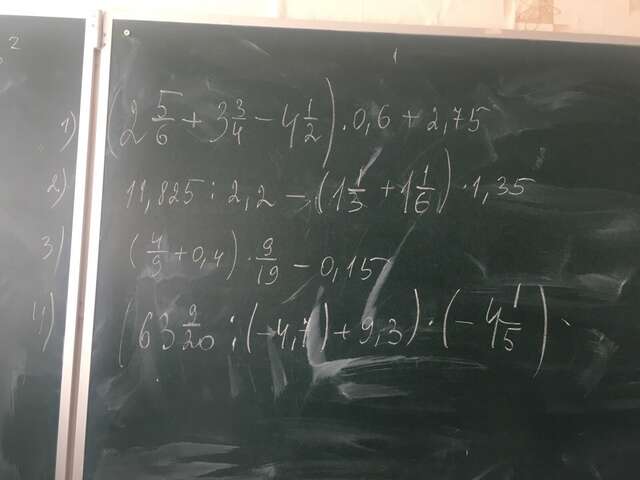 2
1
1) (2 5/6 + 3 3/4 - 4 1/2) · 0,6 + 2,75
2) 11,825 : 2,2 - (1 1/3 + 1 1/6) · 1,35
3) (4/9 + 0,4) · 9/19 - 0,15
4) (63 9/20 : (-4,7) + 9,3) · (-4 1/5)